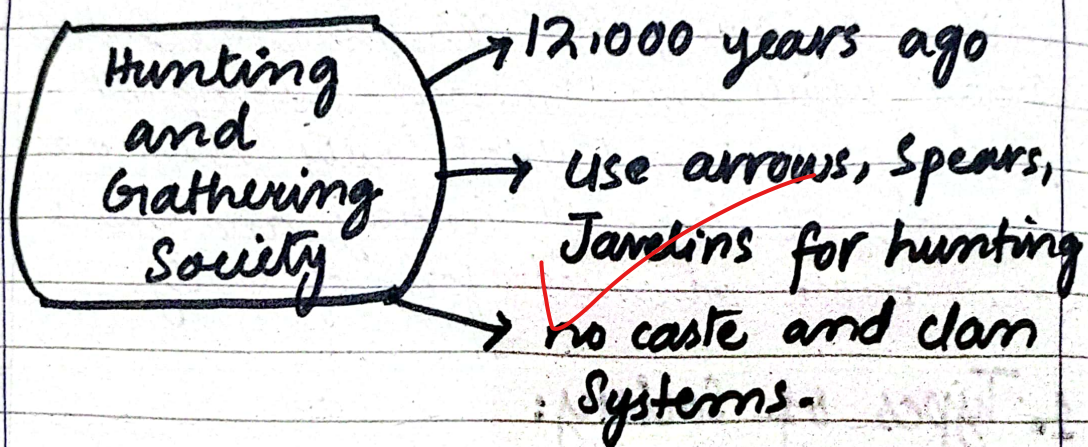 Hunting
and
Gathering
Society
12,000 years ago
use arrows, Spears,
Javelins for hunting
no caste and clan
Systems.